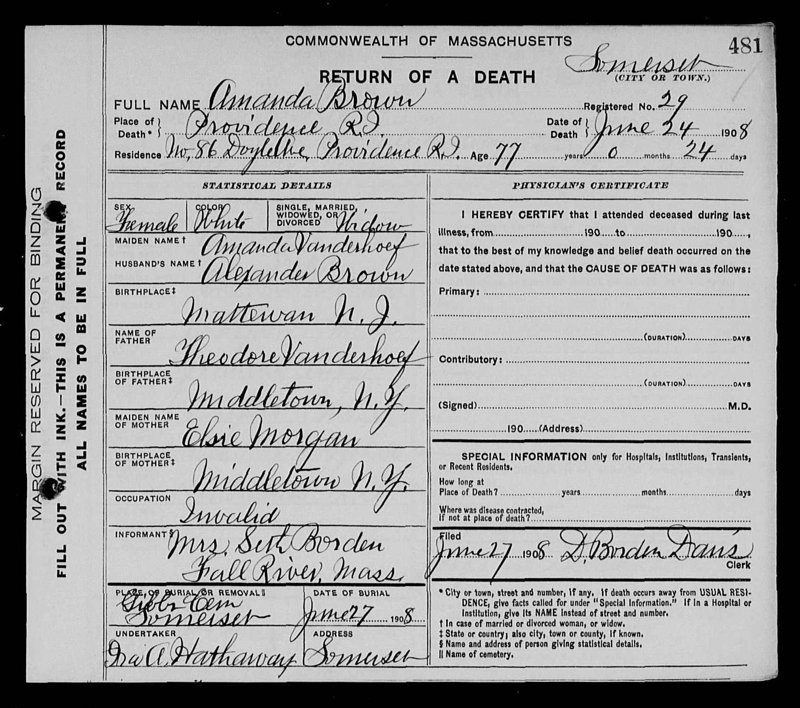 COMMONWEALTH OF MASSACHUSETTS
481
Somerset
RETURN OF A DEATH
(CITY OR TOWN.)
FULL NAME Amanda Brown Registered No. 29
Place of Death* } Providence R.I. Date of Death } June 24 1908
Residence No. 86 Providence R.I. Age 77 years 0 months 24 days
STATISTICAL DETAILS
SEX Female COLOR White SINGLE, MARRIED, WIDOWED, OR DIVORCED Widow
MAIDEN NAME† Amanda Vanderhoef
HUSBAND'S NAME† Alexander Brown
BIRTHPLACE‡
Mattewan N.J.
NAME OF FATHER
Theodore Vanderhoef
BIRTHPLACE OF FATHER‡
Middletown, N.Y.
MAIDEN NAME OF MOTHER
Elsie Morgan
BIRTHPLACE OF MOTHER‡
Middletown N.Y.
OCCUPATION
Invalid
INFORMANT§
Mrs. Seth Borden
Fall River, Mass
PLACE OF BURIAL OR REMOVAL‖ DATE OF BURIAL
Gibbs Cem
Somerset June 27 1908
UNDERTAKER ADDRESS
Ira A. Hathaway Somerset
PHYSICIAN'S CERTIFICATE
I HEREBY CERTIFY that I attended deceased during last
illness, from 190 to 190 ,
that to the best of my knowledge and belief death occurred on the
date stated above, and that the CAUSE OF DEATH was as follows:
Primary:
(DURATION) DAYS
Contributory:
(DURATION) DAYS
(Signed) M.D.
190 (Address)
SPECIAL INFORMATION only for Hospitals, Institutions, Transients,
or Recent Residents.
How long at
Place of Death? years months days
Where was disease contracted,
if not at place of death?
Filed
June 27 1908 D. Borden Davis
Clerk
* City or town, street and number, if any. If death occurs away from USUAL RESI-
DENCE, give facts called for under "Special Information." If in a Hospital or
Institution, give its NAME instead of street and number.
† In case of married or divorced woman, or widow.
‡ State or country; also city, town or county, if known.
§ Name and address of person giving statistical details.
‖ Name of cemetery.
MARGIN RESERVED FOR BINDING
FILL OUT WITH INK.—THIS IS A PERMANENT RECORD
ALL NAMES TO BE IN FULL